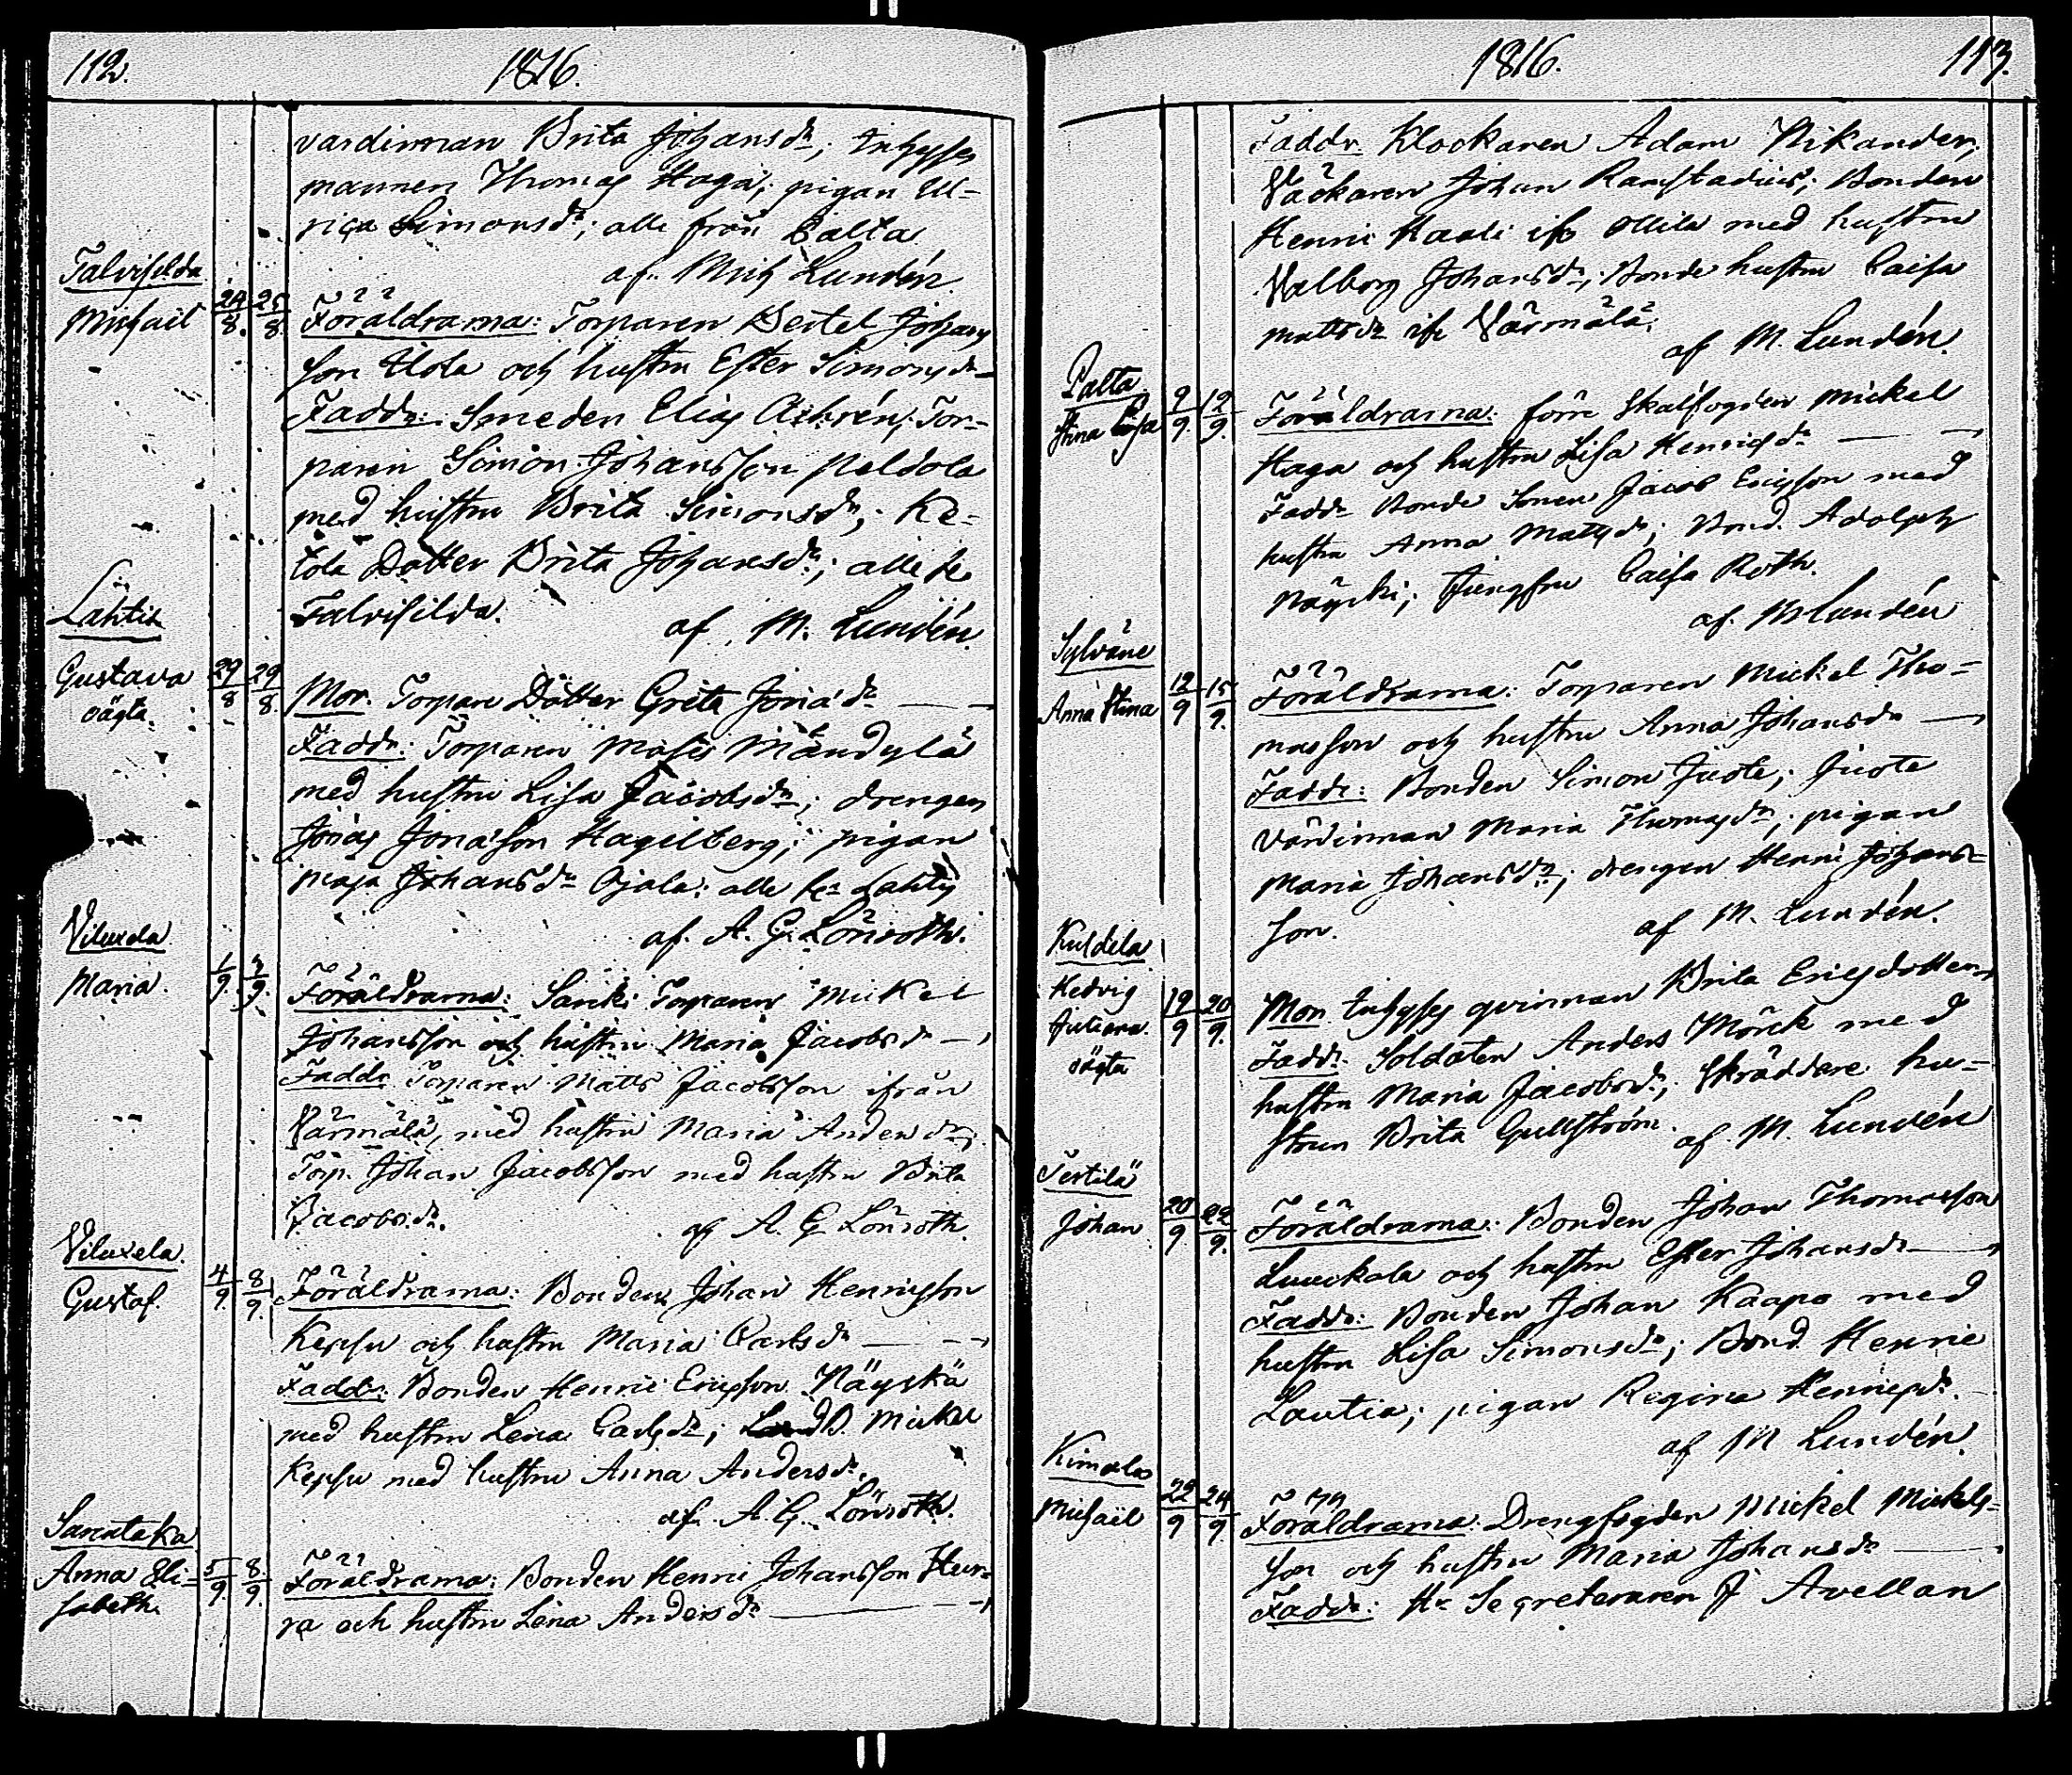 112.
1816.
vardinnan Brita Johansdr; Inhyses
mannen Thomas Haga; pigan Ul-
rica Simonsdr; alle från Palta
af Mich Lundén.
Talvisilda
Michaël 24/8. 25/8.
Föräldrarna: Torparen Bertel Johans
son Uola och hustru Ester Simonsdr
Faddr: Smeden Elias Achrén; Tor-
paren Simon Johansson Peldola
med hustru Brita Simonsdr; Ke-
tola Dotter Brita Johansdr; alle fr.
Talvisilda.
af M. Lundén.
Lahtis
Gustava oägta. 29/8 29/8.
Mor. Torpare Dotter Greta Jonædr
Faddr: Torparen Moses Mändylä
med hustru Lisa Jacobsdr; drengen
Jonas Jonasson Hagelberg; pigan
Maja Johansdr Ojala: alle fr Lahtis
af. A. G. Lönroth.
Viluxela
Maria. 1/9. 3/9.
Föräldrarna: Sanki Torparen Mickel
Johansson och hustru Maria Jacobsdr
Faddr Torparen Matts Jacobsson ifrån
Värmälä, med hustru Maria Andersdr;
Torp. Johan Jacobsson med hustru Brita
Jacobsdr.
af A. G. Lönroth.
Viluxela.
Gustaf. 4/9. 8/9.
Föräldrarna: Bonden Johan Henricsson
Keppu och hustru Maria Carlsdr
Faddr: Bonden Henric Ericsson Näyskä
med hustru Lena Carlsdr; B. Mickel
Keppu med hustru Anna Andersdr.
af A. G. Lönroth.
Anna Eli-
sabeth. 5/9. 8/9.
Föräldrarna: Bonden Henric Johansson Hur-
ra och hustru Lena Andersdr
1816.
113.
Faddr. Klockaren Adam Nikander,
Väckaren Johan Ramstadius; Bonden
Henric Kaali ifr Ollila med hustru
Valborg Johansdr; Bonde hustru Caisa
Mattsdr ifr Värmälä;
af M. Lundén.
Palta
Stina Caisa 9/9. 12/9.
Föräldrarna: förre Skalfogden Mickel
Haga och hustru Lisa Henricsdr
Faddr Bonde Sonen Jacob Ericsson med
hustru Anna Mattsdr; Bond. Adolph
Näyski; Jungfru Caisa Roth.
af. M Lundén
Sylväne
Anna Stina 12/9 15/9.
Föräldrarna: Torparen Mickel Tho-
masson och hustru Anna Johansdr
Faddr: Bonden Simon Juote; Juote
Värdinnan Maria Thomasdr; pigan
Maria Johansdr; drengen Henric Johans-
son.
af M. Lundén.
Kuldela
Hedvig
Juliana
oägta 19/9 20/9.
Mor Inhyses qvinnan Brita Ericsdotter
Faddr. Soldaten Anders Mörck med
hustru Maria Jacobsdr; Skräddare hu-
strun Brita Gullström.
af M. Lundén
Tertilä
Johan 20/9 22/9.
Föräldrarna: Bonden Johan Thomasson
Luuckala och hustru Ester Johansdr
Faddr: Bonden Johan Kaapo med
hustru Lisa Simonsdr; Bond Henric
Lautia; pigan Regina Henricsdr.
af M Lundén.
Kimala
Michaël 22/9 24/9.
Föräldrarna: Drengfogden Mickel Mickels-
son och hustru Maria Johansdr
Faddr: Hr Secreteraren J Avellan